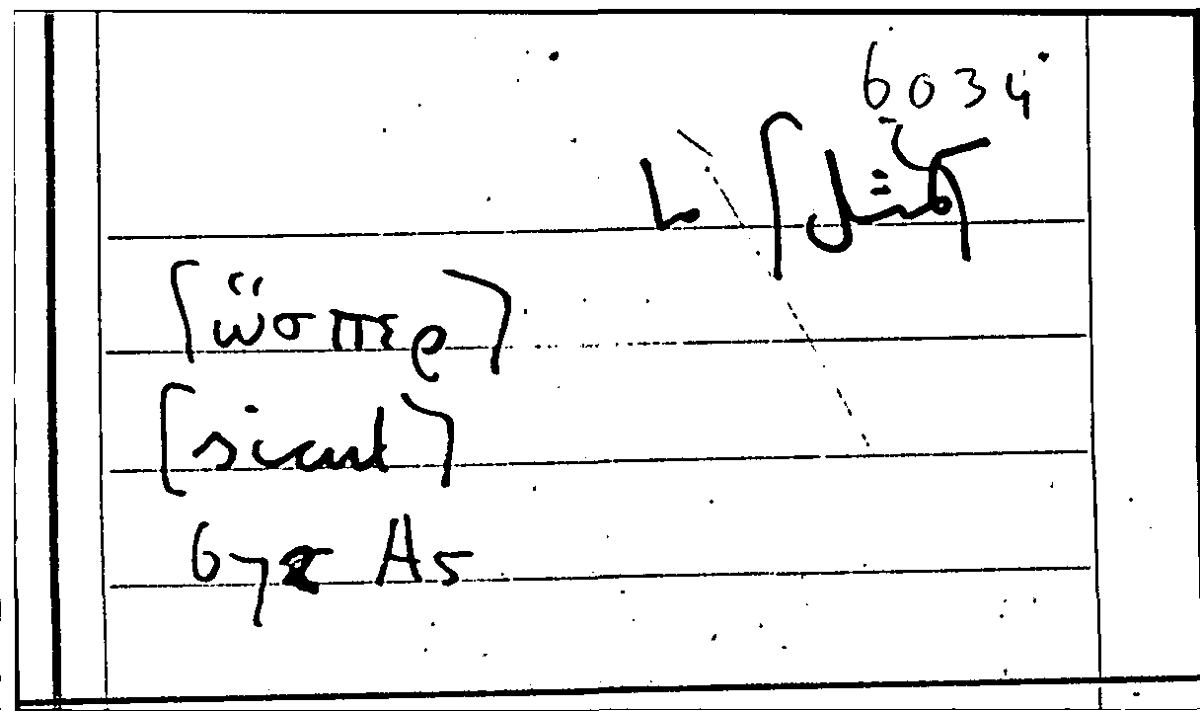 6034
[مثل] ما
[ὥσπερ]
[sicut]
67a A5